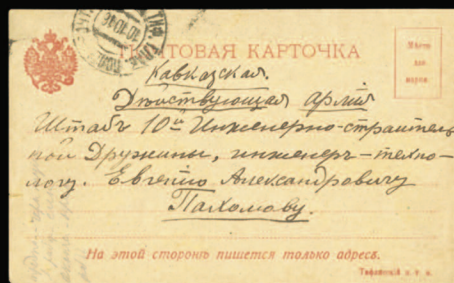 ПОЧТОВАЯ КАРТОЧКА
Мѣсто
для
марки.
Кавказская.
Дѣйствующая Армія
Штабъ 10й Инженерно-строитель
ной Дружины, инженеръ-техно-
логу. Евгенію Александровичу
Пахомову.
На этой сторонѣ пишется только адресъ.